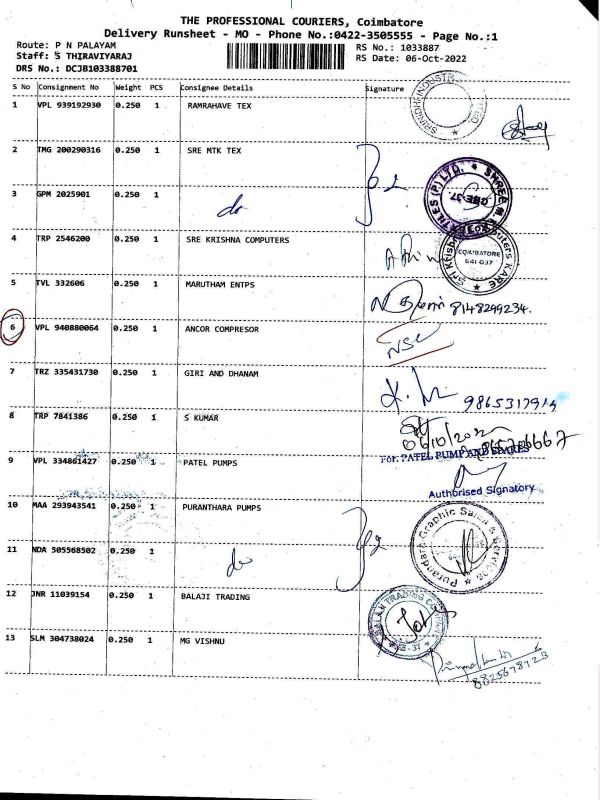 THE PROFESSIONAL COURIERS, Coimbatore
Delivery Runsheet - MO - Phone No.:0422-3505555 - Page No.:1
Route: P N PALAYAM
Staff: S THIRAVIYARAJ
DRS No.: DCJB103388701
RS No.: 1033887
RS Date: 06-Oct-2022
S No Consignment No Weight PCS Consignee Details Signature
1 VPL 939192930 0.250 1 RAMRAHAVE TEX
2 TMG 200290316 0.250 1 SRE MTK TEX
3 GPM 2025901 0.250 1 do
4 TRP 2546200 0.250 1 SRE KRISHNA COMPUTERS
COIMBATORE
641 037
5 TVL 332606 0.250 1 MARUTHAM ENTPS 8148299234.
6 VPL 940880064 0.250 1 ANCOR COMPRESOR NSC
7 TRZ 335431730 0.250 1 GIRI AND DHANAM
8 TRP 7841386 0.250 1 S KUMAR
06/10/2022
9 VPL 334861427 0.250 1 PATEL PUMPS
For. PATEL PUMP AND SPARES
Authorised Signatory
10 MAA 293943541 0.250 1 PURANTHARA PUMPS
Purandara Graphic Sales & Service
11 NDA 505568502 0.250 1 do
12 JNR 11039154 0.250 1 BALAJI TRADING
13 SLM 304738024 0.250 1 MG VISHNU